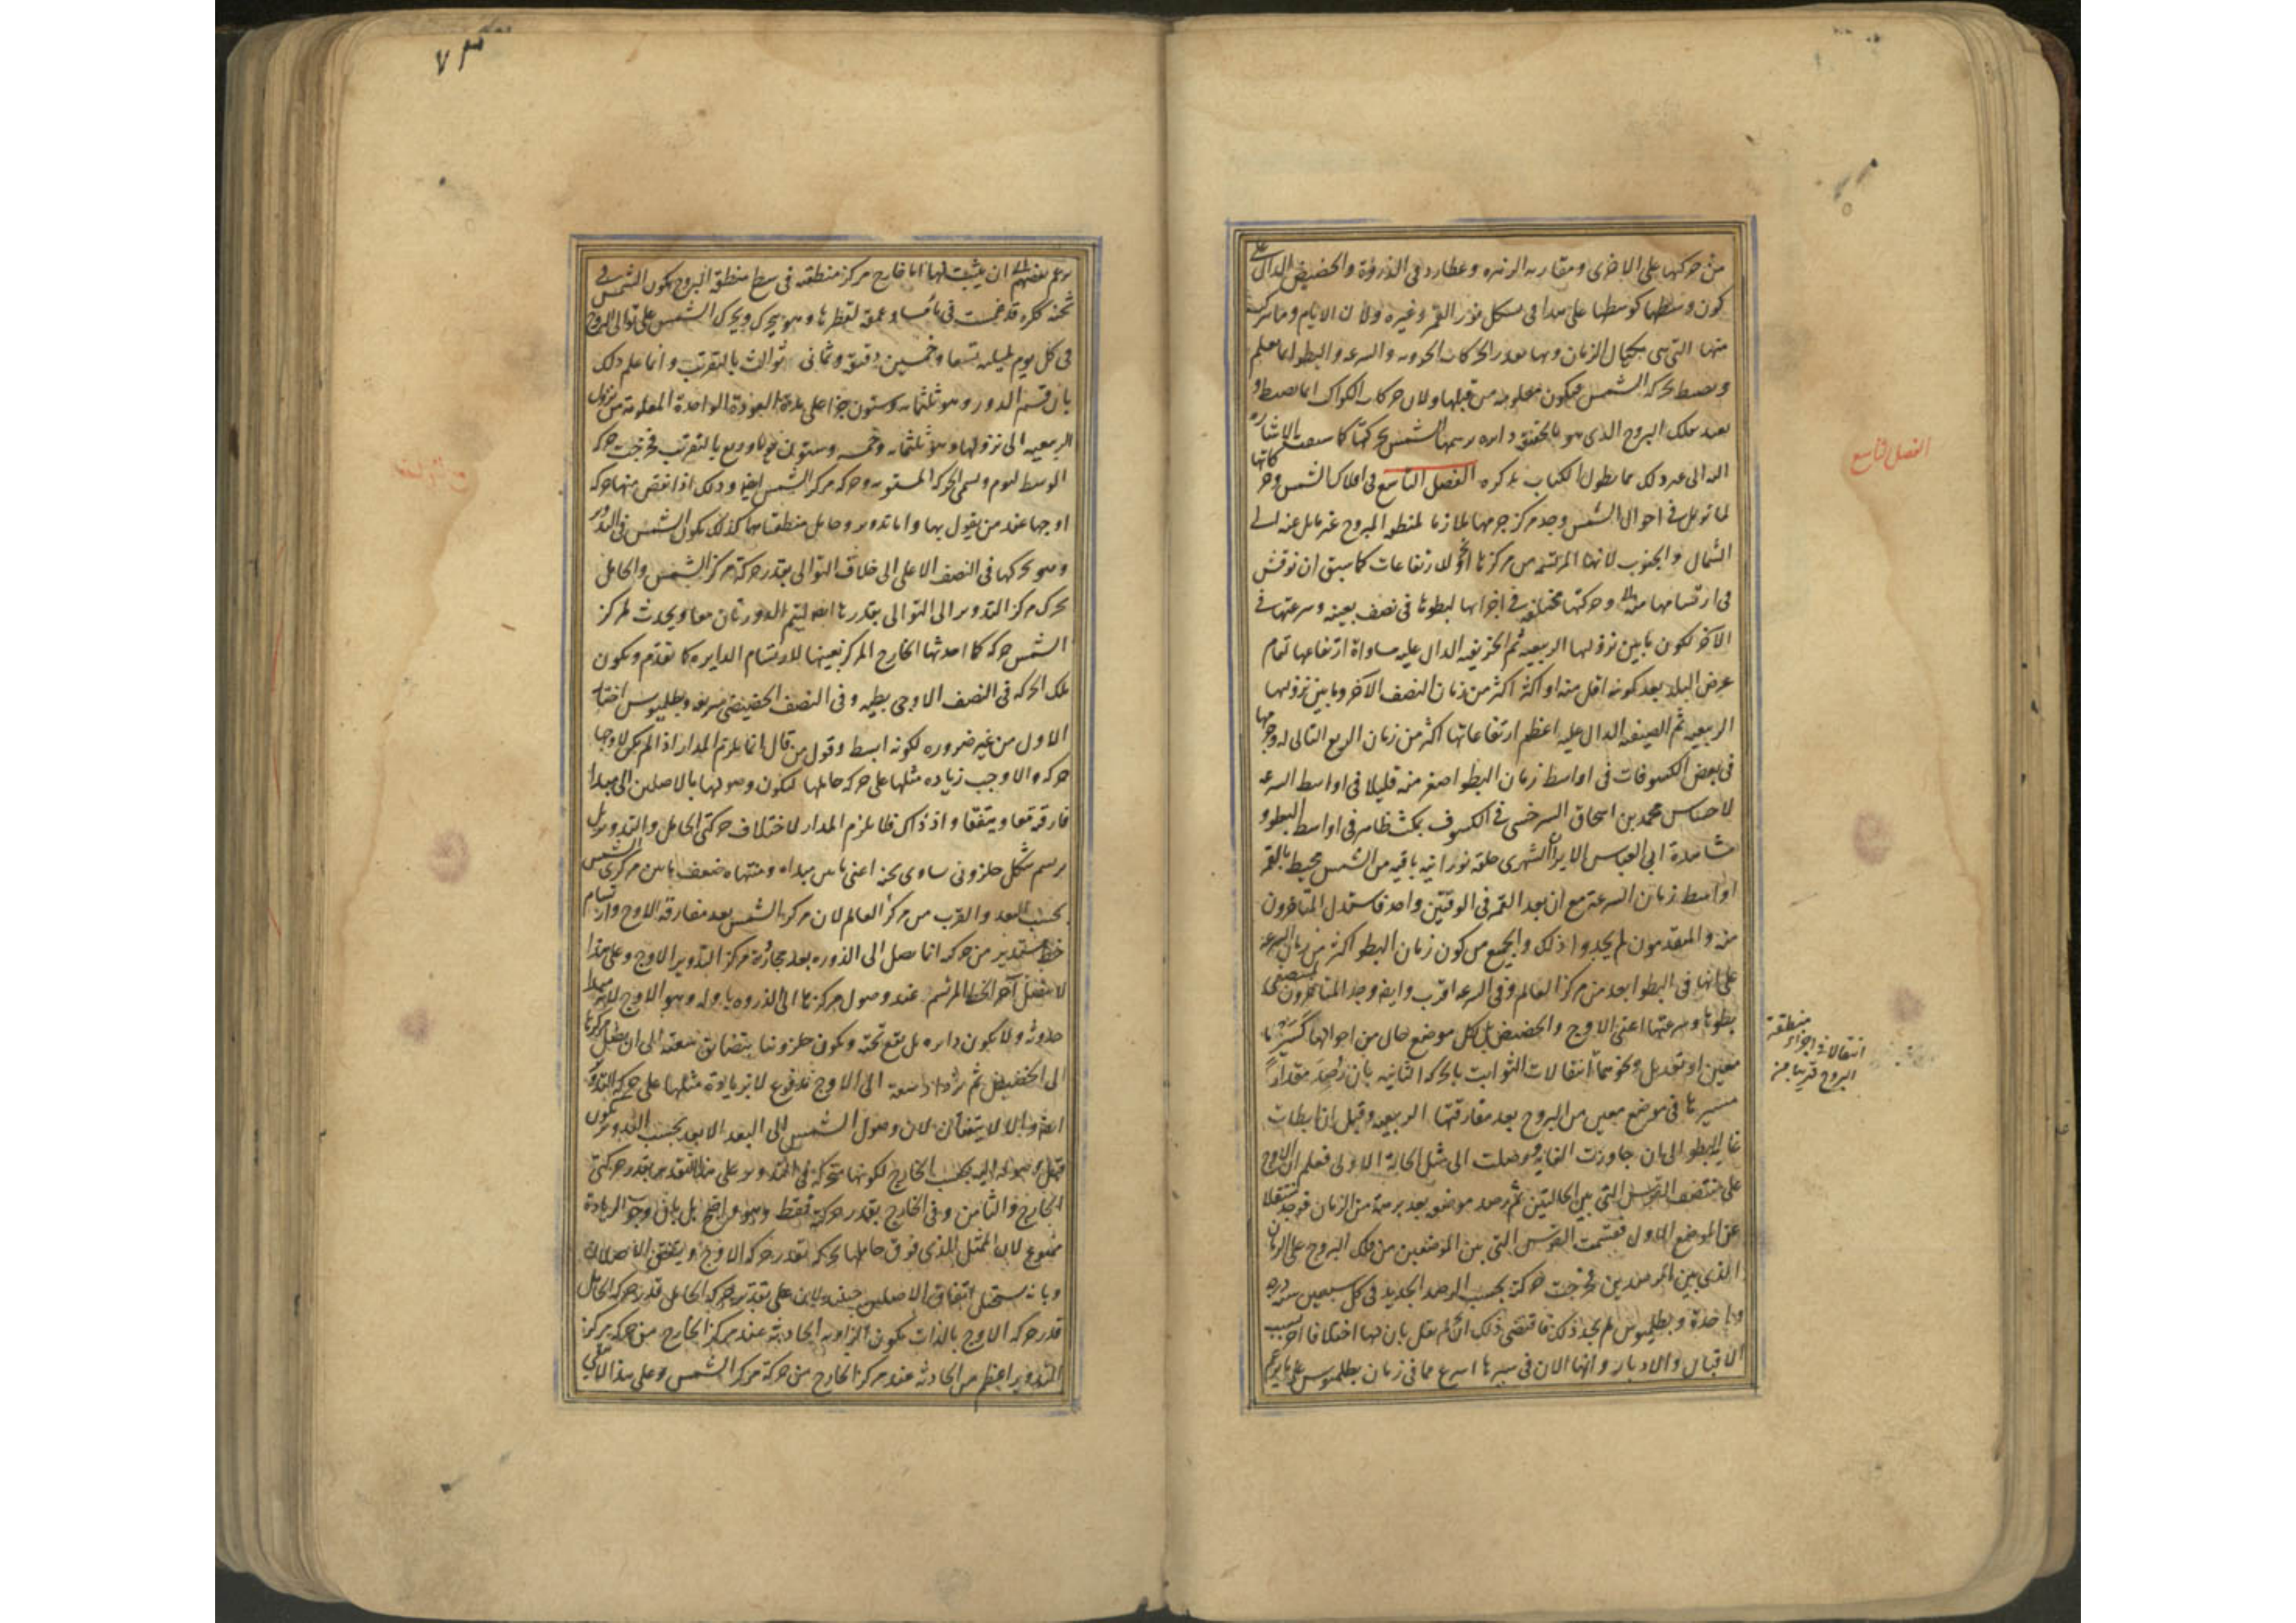 من حركتها على الاخرى ومقاربه الزهره وعطارد فى الذروة والحضيض الدال على
كون وسطها كوسطها على هذا فى شكل نور القمر وغيره ولان الايام وما تركب
منها التى هى مكيال الزمان وبها يقدر الحركات الحرونه والسرعه والبطو انما تعلم
وتضبط بحركه الشمس فيكون معلومه من قبلها ولان حركات الكواكب انما تضبط و
بعد فلك البروج الذى هو بالحقيقه دايره رسمها الشمس بحركتها كما سبقت الاشاره
اليه الى غير ذلك مما يطول الكتاب بذكره الفصل التاسع فى افلاك الشمس وحركاتها
لما تومل فى احوال الشمس وجد مركز جرمها ملازما لمنطقه البروج غير مايل عنه الى
الشمال والجنوب لانها المرتسمه من مركزها لا للارتفاعات كما سبق ان نوقش
فى ارتسامها منه وحركتها مختلفه فى اجزائها لبطوها فى نصف بعينه وسرعتها فى
الآخر لكون ما بين نزولها الربيعيه ثم الخريفيه الدال عليه مساواة ارتفاعها تمام
عرض البلد بعد كونه اقل منه او اكثر اكثر من زمان النصف الآخر وما بين نزولها
الربيعيه ثم الصيفيه الدال عليه اعظم ارتفاعاتها اكثر من زمان الربع التالى له وجرمها
فى بعض الكسوفات فى اواسط زمان البطو اصغر منه قليلا فى اواسط السرعه
لاحساس محمد بن اسحاق السرخسى فى الكسوف بمكث ظاهر فى اواسط البطو و
مشاهدة ابى العباس الايرانشهرى حلقه نورانيه باقيه من الشمس محيط بالقمر
اواسط زمان السرعه مع ان بعد القمر فى الوقتين واحد فاستدل المتاخرون
منه والمتقدمون لم يجدوا ذلك والجميع من كون زمان البطو اكثر من زمان السرعه
على انها فى البطو ابعد من مركز العالم وفى السرعه اقرب وايضا وجد المتاخرون منتصفى
بطوها وسرعتها اعنى الاوج والحضيض بل كل موضع حال من احوالها
معين او تعديل ونحوهما انتقالات الثوابت بالحركه الثانيه بان رُصد مقدار
مسيرها فى موضع معين من البروج بعد مفارقتها الربيعيه وقبل انتهائها
غايه البطو الى ان جاوزت الغايه ووصلت الى مثل الحالة الاولى فعلم ان الاوج
على منتصف القوس التى بين الحالتين ثم رصد موضعه بعد برهة من الزمان فوجد منتقلا
عن الموضع الاول فقسمت القوس التى بين الموضعين من فلك البروج على الزمان
الذى بين الرصدين فخرجت حركة بحسب الرصد الجديد فى كل سبعين سنه درجه
واحدة وبطليموس لم يجد ذلك فاقتضى ذلك ان لم نقل بان لها اختلافا آخر بسبب
الاقبال والادبار وانها الان فى سيرها اسرع مما فى زمان بطليموس على ما يزعم
الفصل التاسع
انتقالا فى اجزاء منطقة
البروج قريبا من
٧٣
زعم بعضهم ان يثبت لها اما خارج مركز منطقته فى سطح منطقه البروج يكون الشمس فى
ثخنه ككره قد غمست فى ماء مساو عمقه لقطرها وهو يتحرك ويحرك الشمس على توالى البروج
فى كل يوم بليلته تسعا وخمسين دقيقه وثمانى ثوالث بالتقريب وانما علم ذلك
بان قسم الدور وهو ثلثمايه وستون جزا على مدة العودة الواحدة المعلومة من نزول
الربيعيه الى نزولها وهو ثلثمايه وخمسه وستون يوما وربع بالتقريب فخرجت حركه
الوسط ليوم ويسمى الحركه المستويه وحركه مركز الشمس ايضا وذلك اذا نقص منها حركه
اوجها عند من يقول بها واما تدوير وحامل منطقتاهما كذلك يكون الشمس فى التدوير
وهو يحركها فى النصف الاعلى الى خلاف التوالى بقدر حركة مركز الشمس والحامل
يحرك مركز التدوير الى التوالى بقدرها ايضا ليتم الدورتان معا ويحدث لمركز
الشمس حركه كما احدثها الخارج المركز بعينها للارتسام الدايره كما تقدم ويكون
تلك الحركه فى النصف الاوجى بطيه وفى النصف الحضيضى سريعه وبطليموس اختار
الاول من غير ضروره لكونه ابسط وقول من قال انما يلزم المدار اذا لم يكن لاوجها
حركه والا وجب زياده مثلها على حركه حاملها ليكون وصولها بالاصلين الى مبدا
فارقته معا ويتفقا واذ ذاك فلا يلزم المدار لاختلاف حركتى الحامل والتدوير بل
يرسم شكل حلزونى ساوى بحذا اعنى ما بين مبداه ومنتهاه ضعف ما بين مركزى الشمس
بحسب البعد والقرب من مركز العالم لان مركز الشمس بعد مفارقه الاوج وارتسام
خط مستدير من حركه انما يصل الى الذروه بعد مجاوزه مركز التدوير الاوج وعلى هذا
لا يتصل آخر الخط المرتسم عند وصول مركزها الى الذروه باوله وهو الاوج
حدوثه ولا يكون دايره بل يقع تحته ويكون حلزونيا يتضايق سعته الى ان يصل مركزها
الى الحضيض ثم يزداد سعته الى الاوج مدفوع لا بزيادة مثلها على حركه التدوير
ايضا والا لا يتفقان لان وصول الشمس الى البعد الابعد بحسب التدوير يكون
قبل وصوله اليه بحسب الخارج لكونها متحركه فى التدوير على هذا التقدير بقدر حركتى
الخارج والثامن وفى الخارج بقدر حركته فقط وهو واضح بل بان وجوب الزيادة
ممنوع لان الممثل الذى فوق حاملها يحركه بقدر حركه الاوج ويتفق الاصلان
وبانه يستحيل اتفاق الاصلين حينئذ ولان على تقدير حركه الحامل قدر حركه الحامل
قدر حركه الاوج بالذات يكون الزاويه الحادثه عند مركز الخارج من حركه مركز
التدوير اعظم من الحادثه عند مركز الخارج من حركة مركز الشمس وعلى هذا لا يبقى